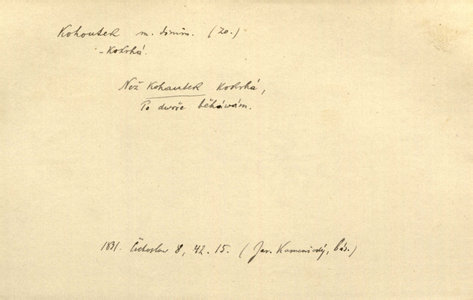 Kohoutek m. dimin. (zo.)
-Kokrhá.
Než Kohautek kokrhá,
Po dwoře běháwám.
1831. Čechoslav 8, 42. 15. (Jar. Kamenický, bás.)